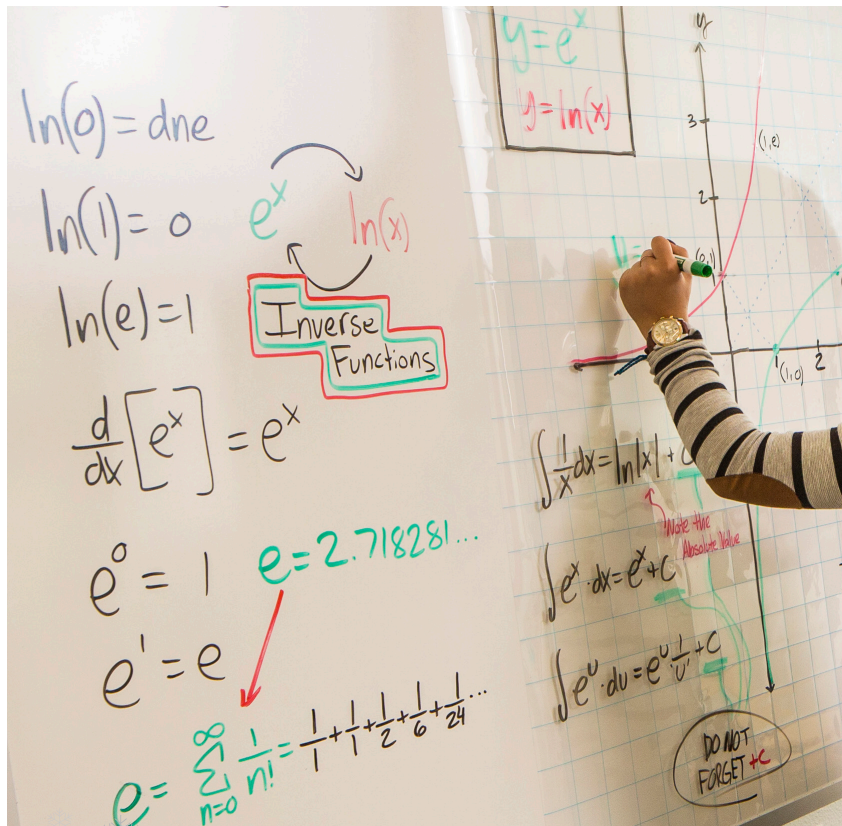 ln(0) = dne
ln(1) = 0
ln(e) = 1
e^x
ln(x)
Inverse
Functions
d/dx [e^x] = e^x
e^0 = 1
e^1 = e
e = 2.718281...
e = ∑_{n=0}^{∞} 1/n! = 1/1 + 1/1 + 1/2 + 1/6 + 1/24 ...
y = e^x
y = ln(x)
y
3
(1,e)
2
(0,1)
1
(1,0)
2
∫ 1/x dx = ln|x| + C
Note the
Absolute Value
∫ e^x · dx = e^x + C
∫ e^u · du = e^u 1/u' + C
DO NOT
FORGET +C